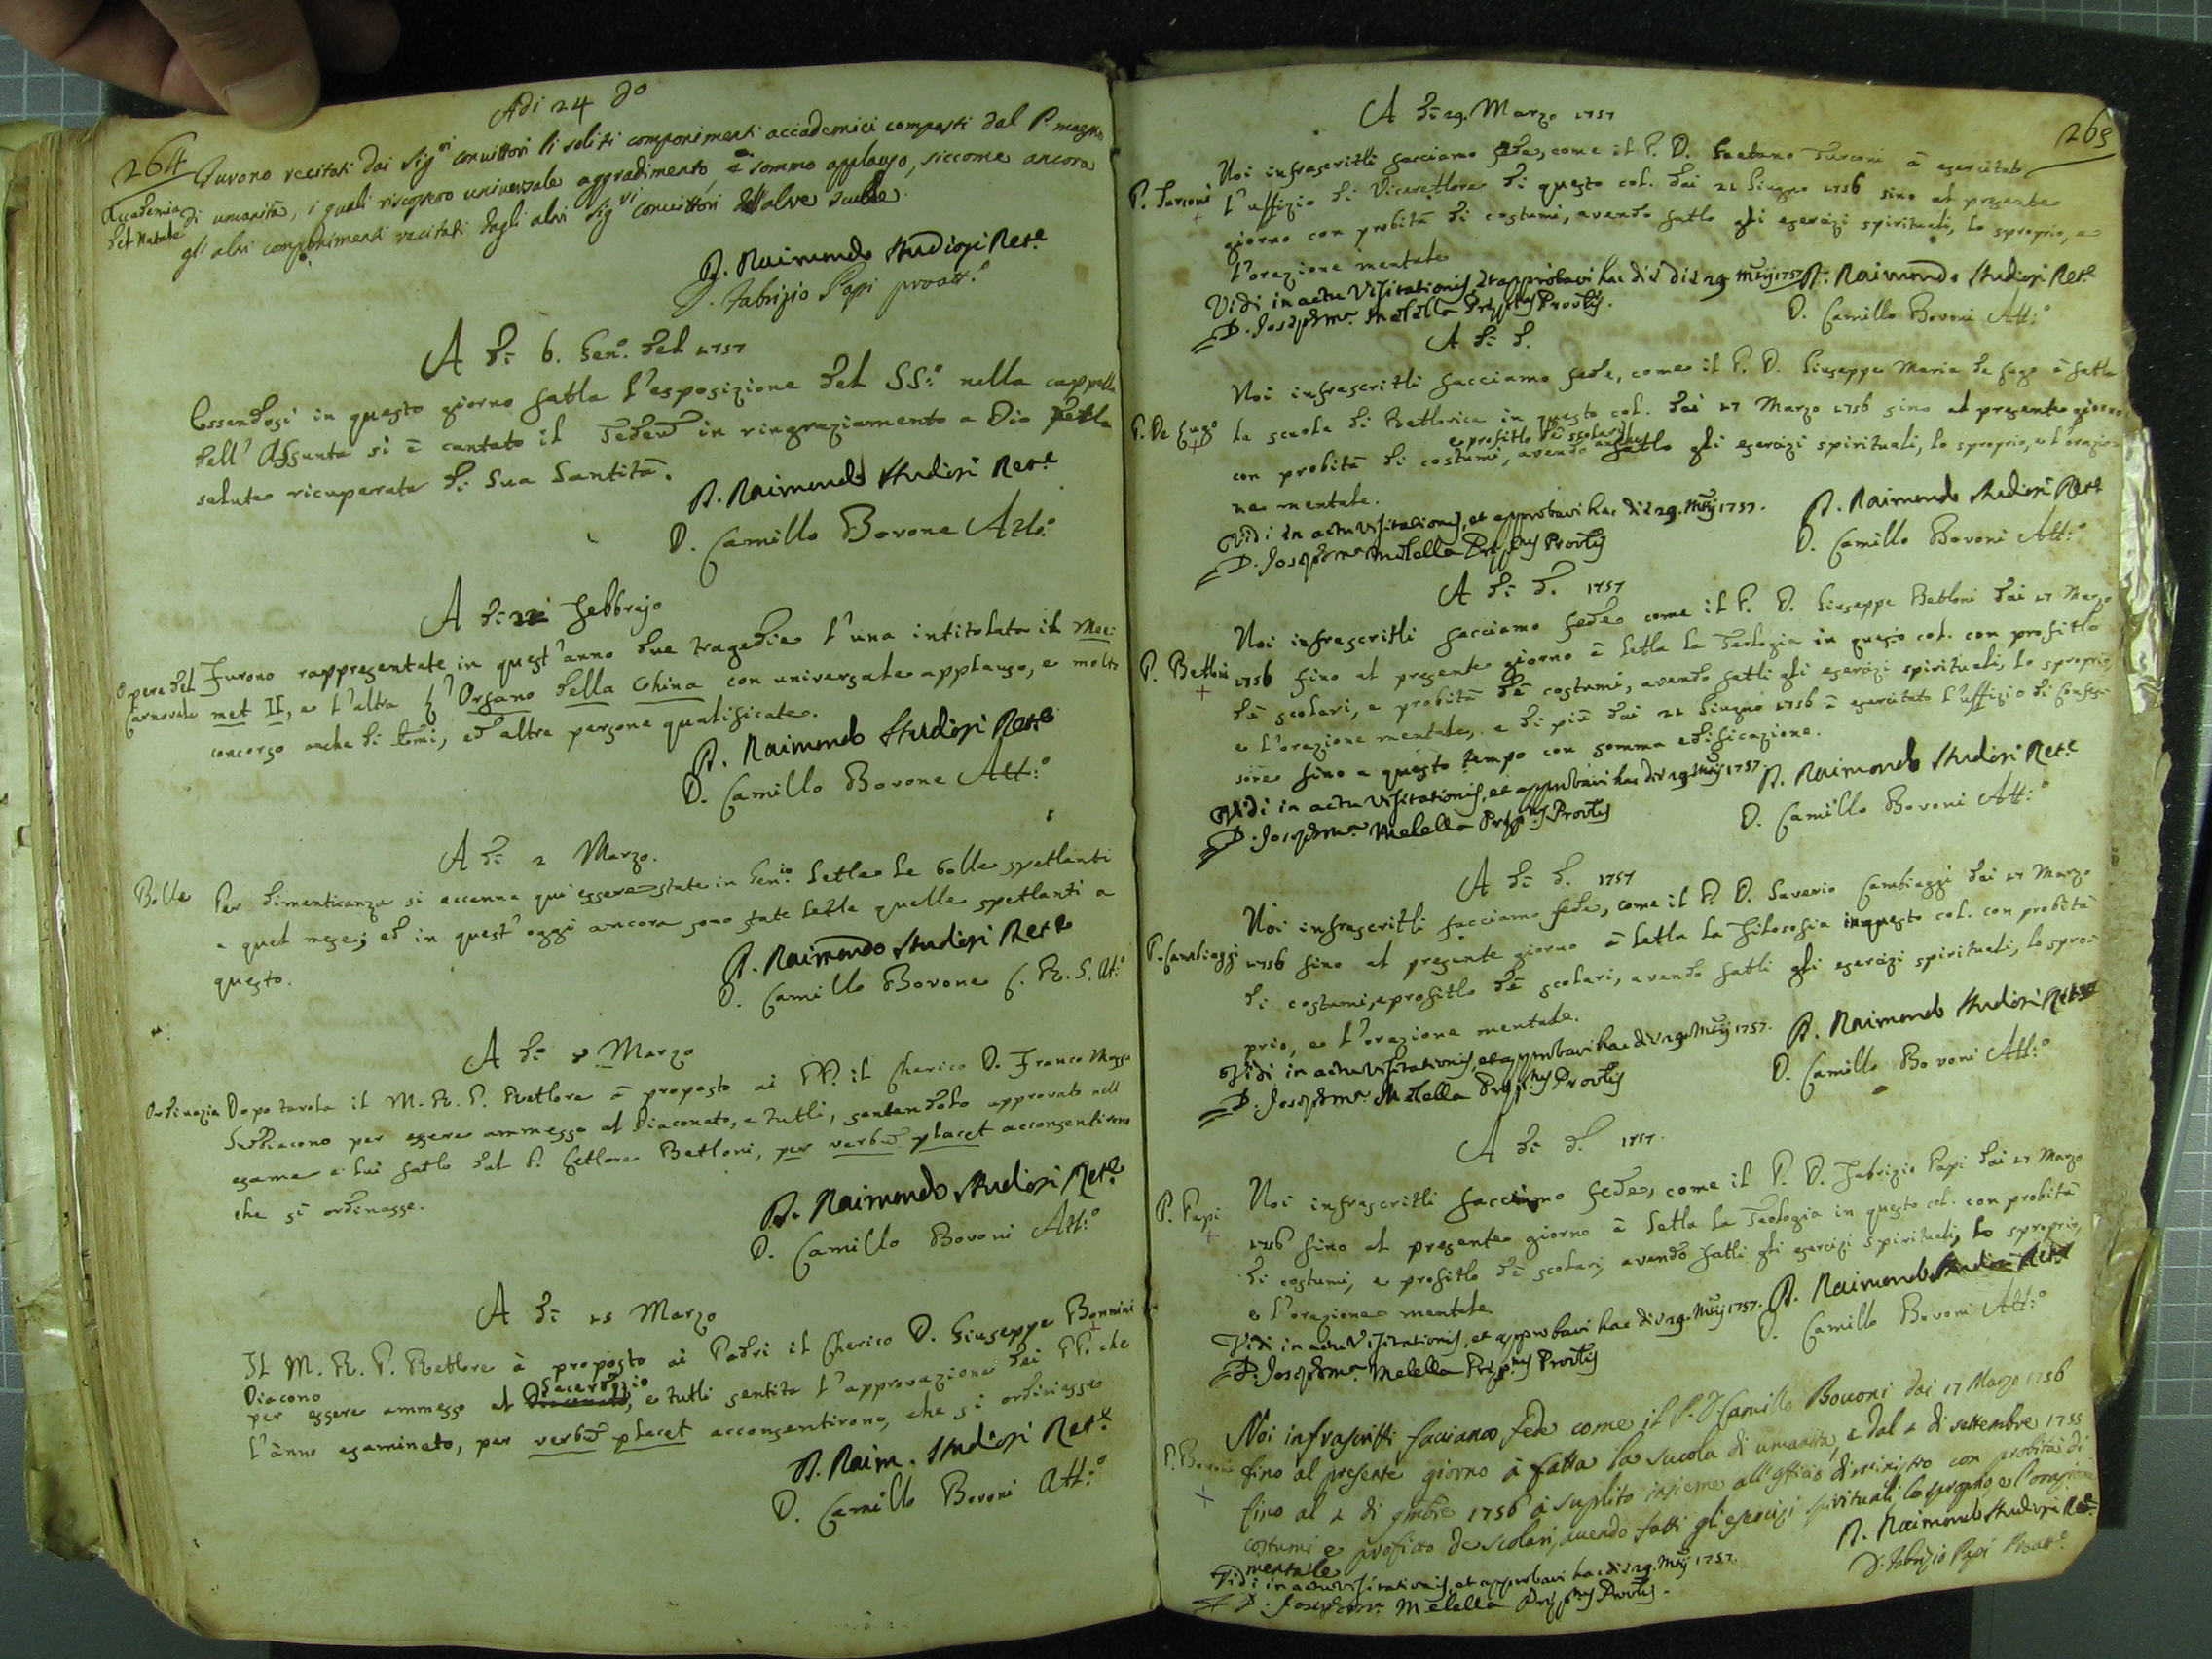 264
Adi 24 do
Furono recitati dai Sig.ri convittori li soliti componimenti accademici composti dal P. maestro
Accademia del Natale
di umanità, i quali riscossero universale aggradimento e sommo applauso, siccome ancora
gli altri componimenti recitati dagli altri Sig.ri convittori dell'altre scuole.
D. Raimondo Studiosi Ret.e
D. Fabrizio Papi proatt.o
A dì 6. Gen.o del 1757
Essendosi in questo giorno fatta l'esposizione del SS.o nella cappella
dell'Assunta si è cantato il Tedeum in ringraziamento a Dio per la
salute ricuperata di Sua Santità.
D. Raimondo Studiosi Ret.e
D. Camillo Bovone Att.o
A dì 22 Febbrajo
Opere del Carnovale
Furono rappresentate in quest'anno due tragedie l'una intitolata il Mao:
met II, e l'altra l'Orfano della China con universale applauso, e molto
concorso anche di uomini, ed altre persone qualificate.
D. Raimondo Studiosi Ret.e
D. Camillo Bovone Att.o
A dì 2 Marzo.
Bolle
Per dimenticanza si accenna qui essere state in Gen.io lette le bolle spettanti
a quel mese; ed in quest'oggi ancora sono state lette quelle spettanti a
questo.
D. Raimondo Studiosi Ret.e
D. Camillo Bovone C. R. S. At.o
A dì 8 Marzo
Ordinazio
Dopo tavola il M. R. P. Rettore à proposto ai PP. il Cherico D. Franco Massa
Suddiacono per essere ammesso al Diaconato, e tutti, sentendolo approvato nell'
esame a lui fatto dal P. Lettore Bettoni, per verbum placet acconsentirono
che si ordinasse.
D. Raimondo Studiosi Ret.e
D. Camillo Bovoni Att.o
A dì 15 Marzo
Il M. R. P. Rettore à proposto ai Padri il Cherico D. Giuseppe Bonnini
Diacono
per essere ammesso al Sacerdozio, e tutti sentita l'approvazione dei PP. che
l'ànno esaminato, per verbum placet acconsentirono, che si ordinasse
D. Raim. Studiosi Ret.e
D. Camillo Bovoni Att.o
265
A dì 29. Marzo 1757
P. Turconi
Noi infrascritti facciamo fede, come il P. D. Gaetano Turconi à esercitato
l'uffizio di Vicerettore di questo col. dai 21 Giugno 1756 sino al presente
giorno con probità di costumi, avendo fatto gli esercizi spirituali, lo sproprio, e
l'orazione mentale
Vidi in actu Visitationis, et approbavi hac die 29. Mtij 1757
D. Raimondo Studiosi Ret.e
D. Joseph Ma. Melella Prep.tus Prov.lis.
D. Camillo Bovoni Att.o
A dì d.
P. De Lugo
Noi infrascritti facciamo fede, come il P. D. Giuseppe Maria de Lugo à fatta
la scuola di Rettorica in questo col. dai 17 Marzo 1756 sino al presente giorno
e profitto de scolari
con probità di costumi, avendo fatto gli esercizi spirituali, lo sproprio, e l'orazio=
ne mentale.
Vidi in actu Visitationis, et approbavi hac die 29. Mtij 1757.
D. Raimondo Studiosi Ret.e
D. Joseph Ma. Melella Prep.tus Prov.lis
D. Camillo Bovoni Att.o
A dì d. 1757
P. Bettoni
Noi infrascritti facciamo fede come il P. D. Giuseppe Bettoni dai 17 Marzo
1756 fino al presente giorno à letta la Teologia in questo col. con profitto
de' scolari, e probità de' costumi, avendo fatti gli esercizi spirituali, lo sproprio,
e l'orazione mentale, e di più dai 21 Giugno 1756 à esercitato l'uffizio di Confes=
sore fino a questo tempo con somma edificazione.
Vidi in actu Visitationis, et approbavi hac die 29. Mtij 1757.
D. Raimondo Studiosi Ret.e
D. Joseph Ma. Melella Prep.tus Prov.lis
D. Camillo Bovoni Att.o
A dì d. 1757
P. Cambiaggi
Noi infrascritti facciamo fede, come il P. D. Saverio Cambiaggi dai 17 Marzo
1756 fino al presente giorno à letta la Filosofia in questo col. con probità
di costumi, e profitto de' scolari, avendo fatti gli esercizi spirituali, lo spro=
prio, e l'orazione mentale.
Vidi in actu Visitationis, et approbavi hac die 29. Mtij 1757.
D. Raimondo Studiosi Ret.e
D. Joseph Ma. Melella Prep.tus Prov.lis
D. Camillo Bovoni Att.o
A dì d. 1757.
P. Papi
Noi infrascritti facciamo fede, come il P. D. Fabrizio Papi dai 17 Marzo
1756 fino al presente giorno à letta la Teologia in questo col. con probità
di costumi, e profitto de' scolari, avendo fatti gli esercizi spirituali, lo sproprio,
e l'orazione mentale.
Vidi in actu Visitationis, et approbavi hac die 29. Mtij 1757.
D. Raimondo Studiosi Ret.e
D. Joseph Ma. Melella Prep.tus Prov.lis
D. Camillo Bovoni Att.o
P. Bovoni
Noi infrascritti facciamo fede come il P. D. Camillo Bovoni dai 17 Marzo 1756
fino al presente giorno à fatta la scuola di umanità, e dal 2 di settembre 1755
fino al 2 di 9mbre 1756 à suplito insieme all'officio di ministro con probità di
costumi e profitto de scolari, avendo fatti gli esercizi spirituali, lo sproprio e l'orazione
mentale
D. Raimondo Studiosi Ret.e
Vidi in actu Visitationis, et approbavi hac die 29. Mtij 1757.
D. Fabrizio Papi Proatt.o
D. Joseph Ma. Melella Prep.tus Prov.lis.